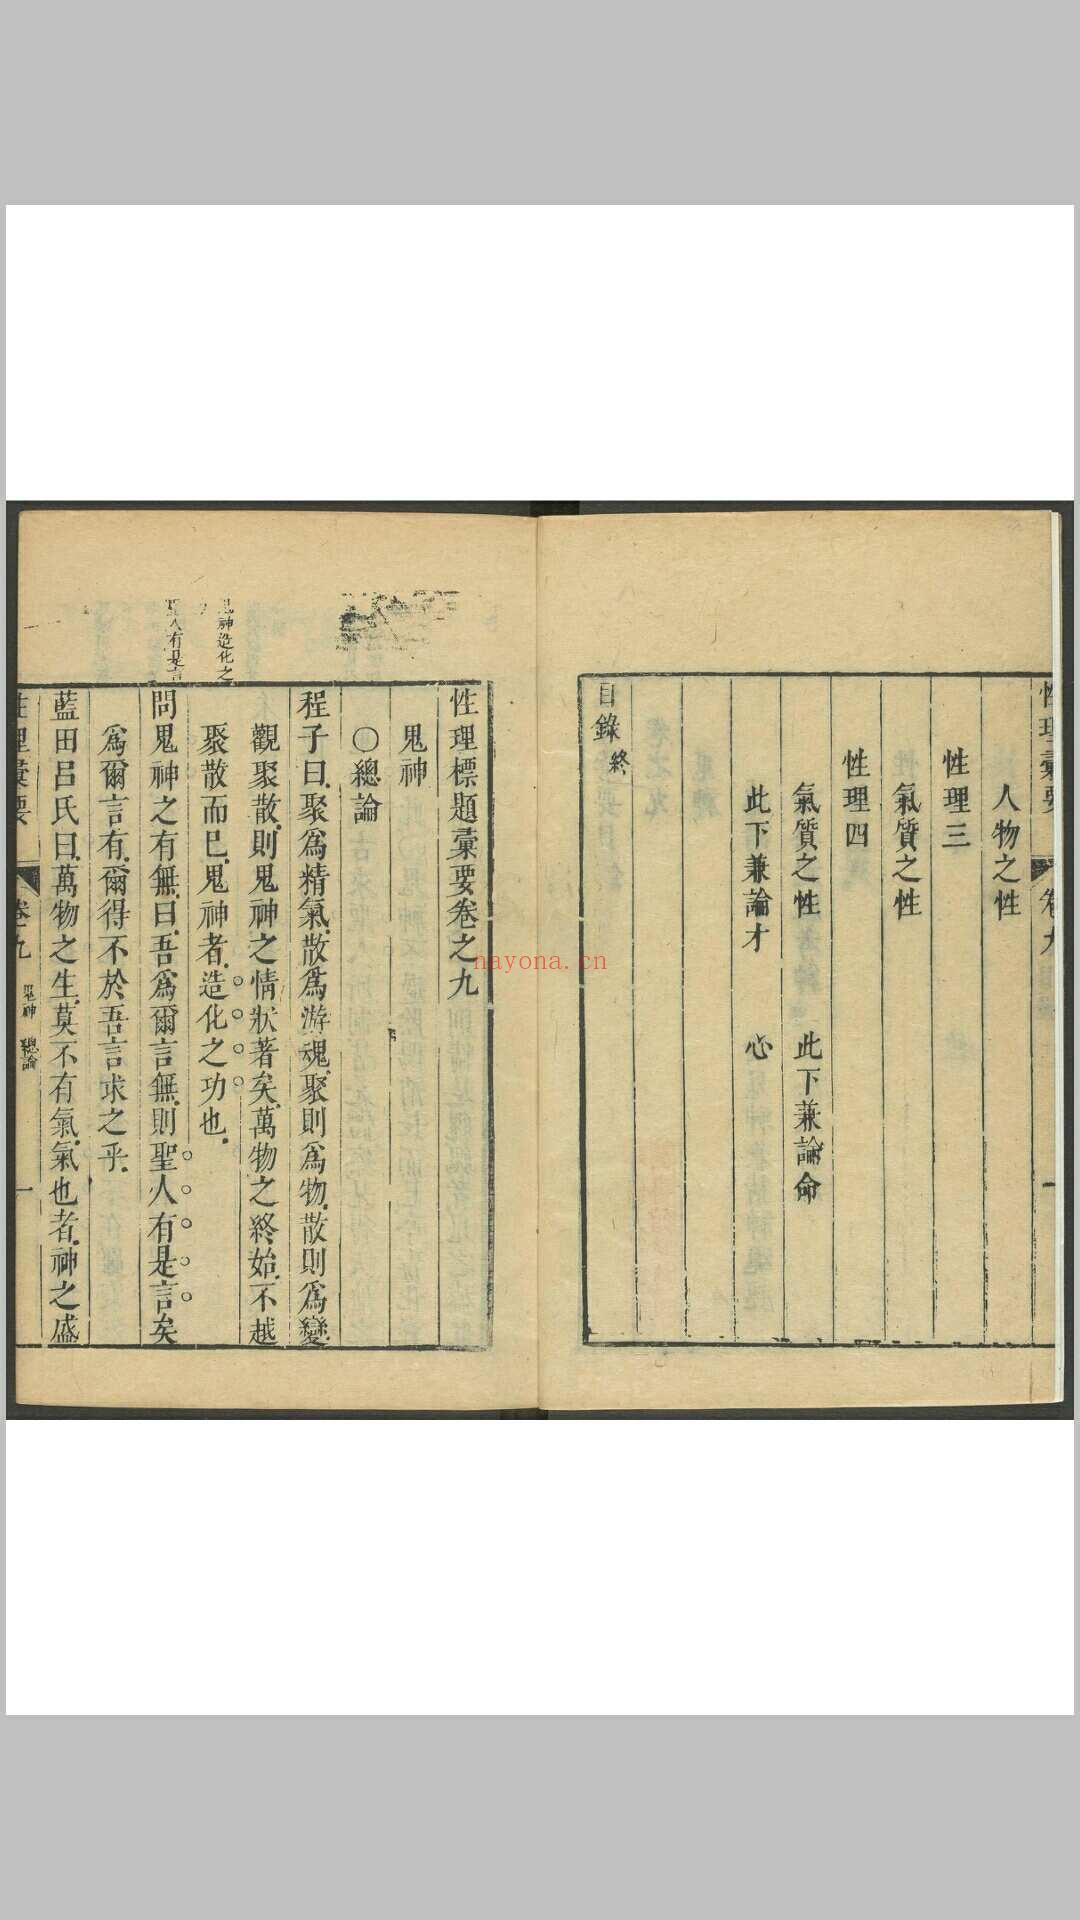 性理彙要
卷九
一
人物之性
性理三
氣質之性
性理四
氣質之性　此下兼論命
此下兼論才　心
目錄終
性理標題彙要卷之九
鬼神
○總論
程子曰聚爲精氣散爲游魂聚則爲物散則爲變
觀聚散則鬼神之情狀著矣萬物之終始不越
聚散而已鬼神者造化之功也
問鬼神之有無曰吾爲爾言無則聖人有是言矣
爲爾言有爾得不於吾言求之乎
藍田呂氏曰萬物之生莫不有氣氣也者神之盛
神造化之
人有是言
性理彙要
卷九
鬼神　總論
一
nayona.cn